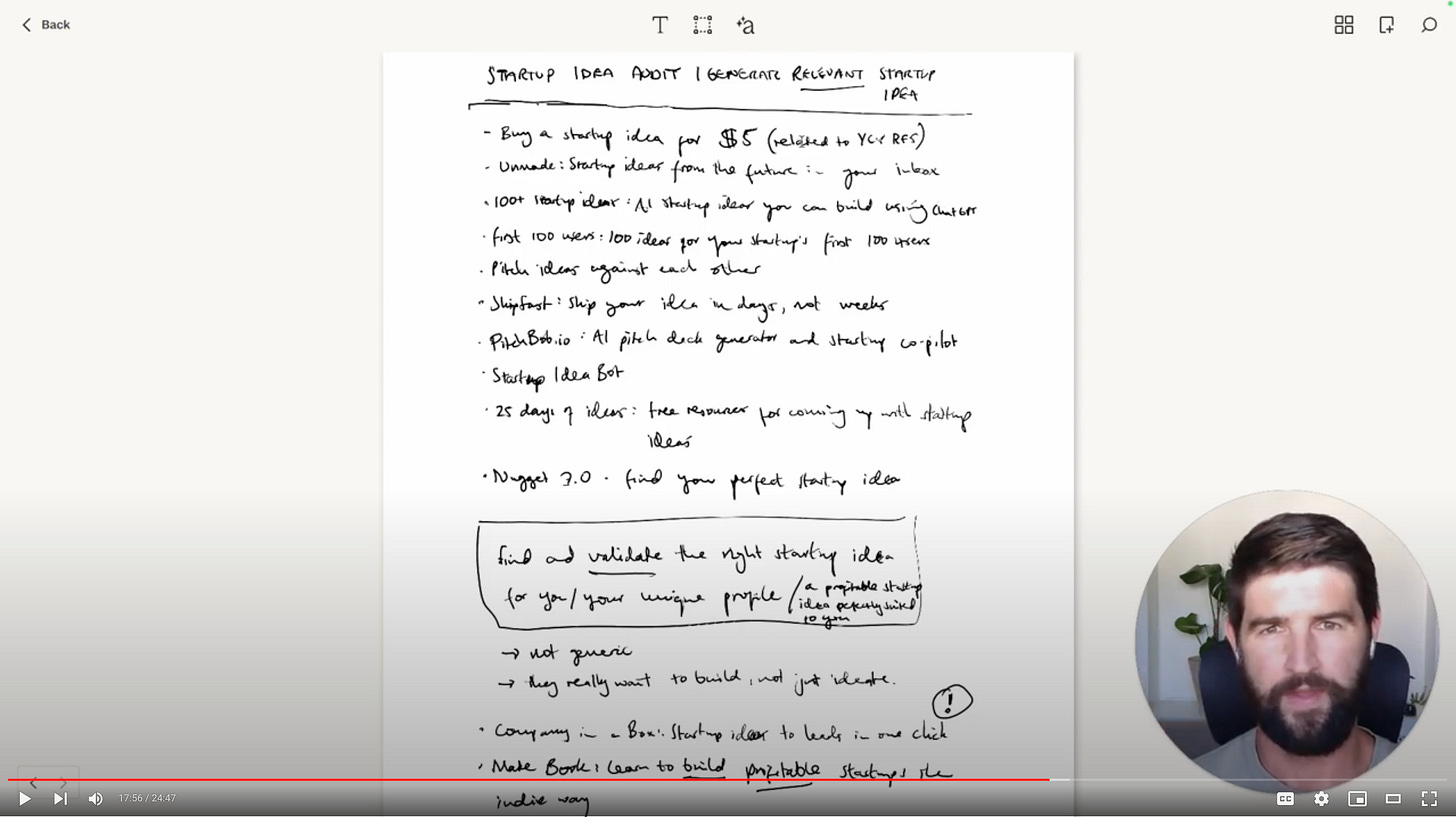 Back
T
a
STARTUP IDEA AUDIT | GENERATE RELEVANT STARTUP
IDEA
- Buy a startup idea for $5 (related to YC's RFS)
- Unmade: Startup ideas from the future in your inbox
. 100+ startup ideas: AI startup ideas you can build using ChatGPT
· first 100 users: 100 ideas for your startup's first 100 users
. Pitch ideas against each other
- ShipFast: ship your idea in days, not weeks
. PitchBob.io: AI pitch deck generator and startup co-pilot
· Startup Idea Bot
· 25 days of ideas: free resources for coming up with startup
ideas
· Nugget 3.0 . find your perfect startup idea
find and validate the right startup idea
for you/your unique profile / a profitable startup
idea perfectly suited
to you
→ not generic
→ they really want to build, not just ideate.
!
· Company in a Box: Startup ideas to leads in one click
· Make Book: learn to build profitable startups the
indie way
17:56 / 24:47
CC